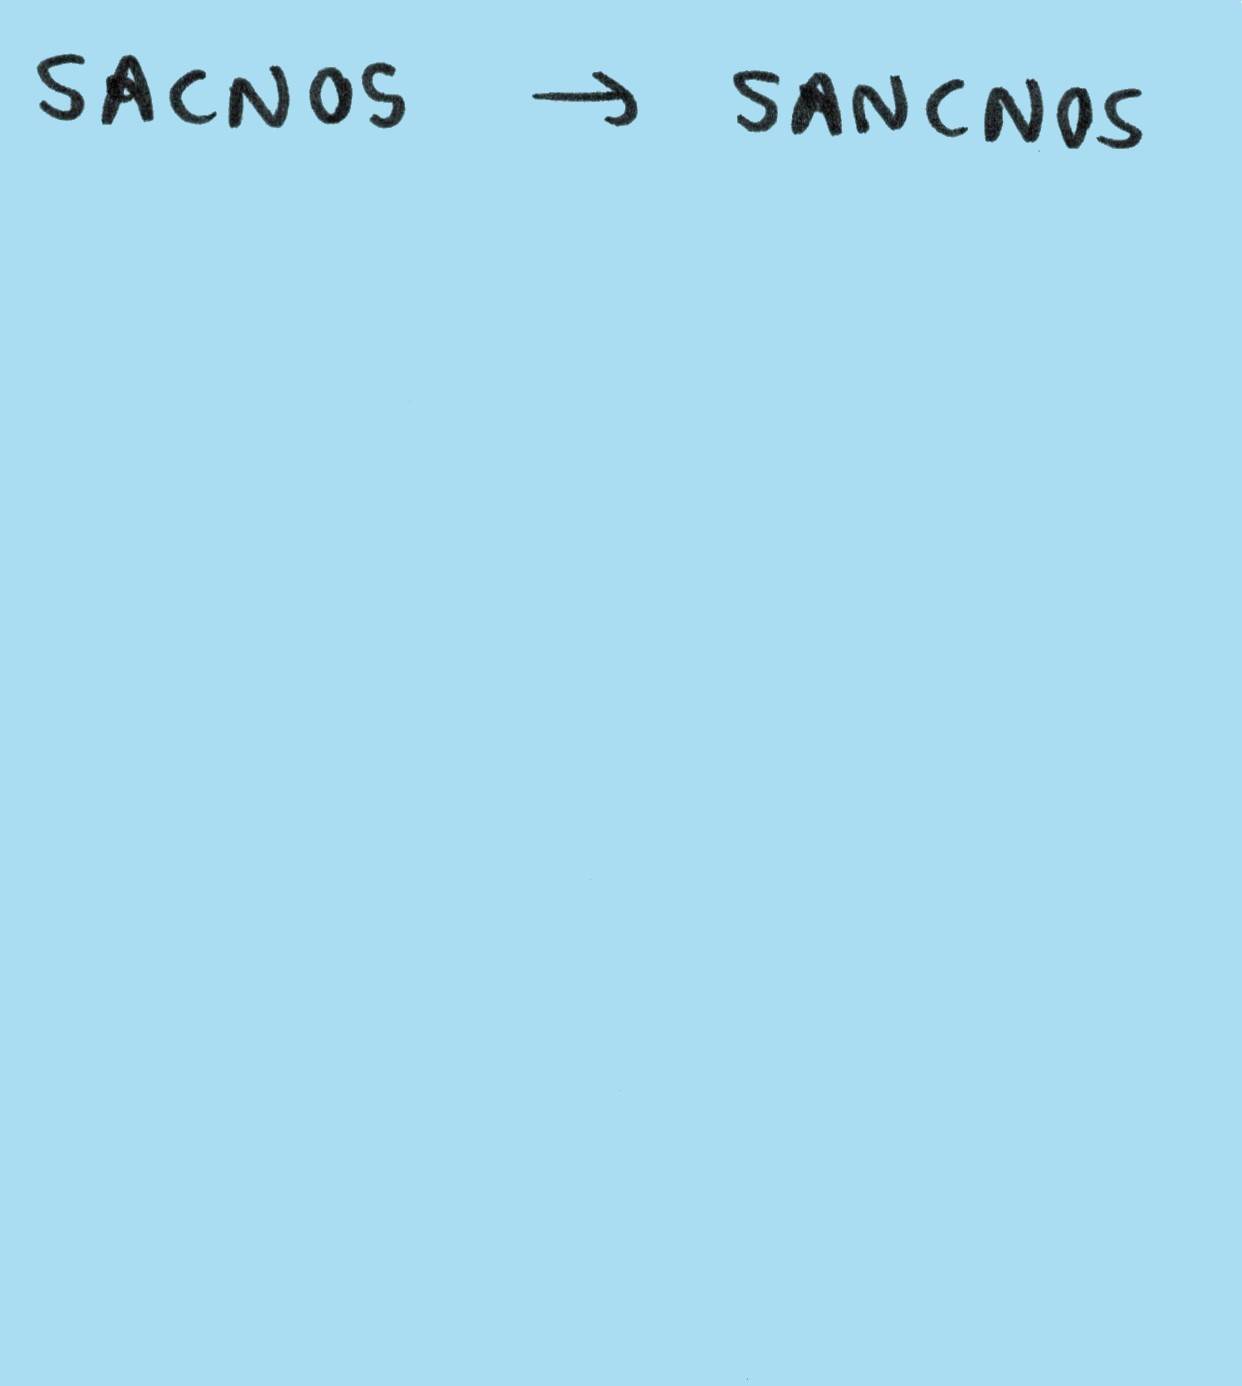 SACNOS → SANCNOS